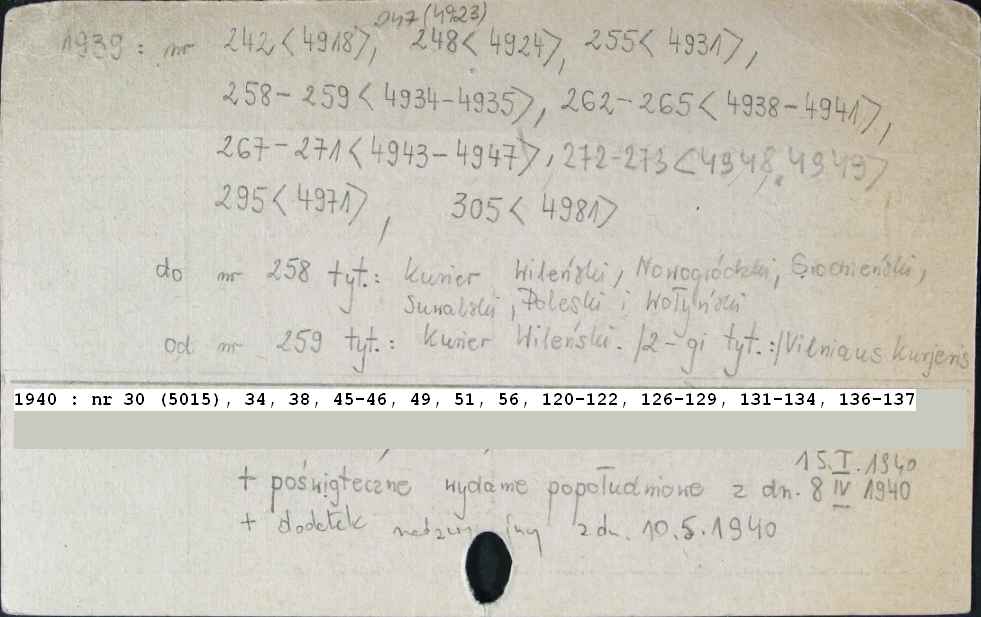 247 (4923)
1939 : nr 242<4918>, 248<4924>, 255<4931>,
258-259<4934-4935>, 262-265<4938-4941>,
267-271<4943-4947>, 272-273<4948, 4949>
295<4971>, 305<4981>
do nr 258 tyt.: Kurier Wileński, Nowogródzki, Grodzieński,
Suwalski, Poleski i Wołyński
od nr 259 tyt.: Kurier Wileński. /2-gi tyt.:/Vilniaus Kurjeris
1940 : nr 30 (5015), 34, 38, 45-46, 49, 51, 56, 120-122, 126-129, 131-134, 136-137
15.I.1940
+ poświąteczne wydanie popołudniowe z dn. 8 IV 1940
+ dodatek z dn. 10.5.1940